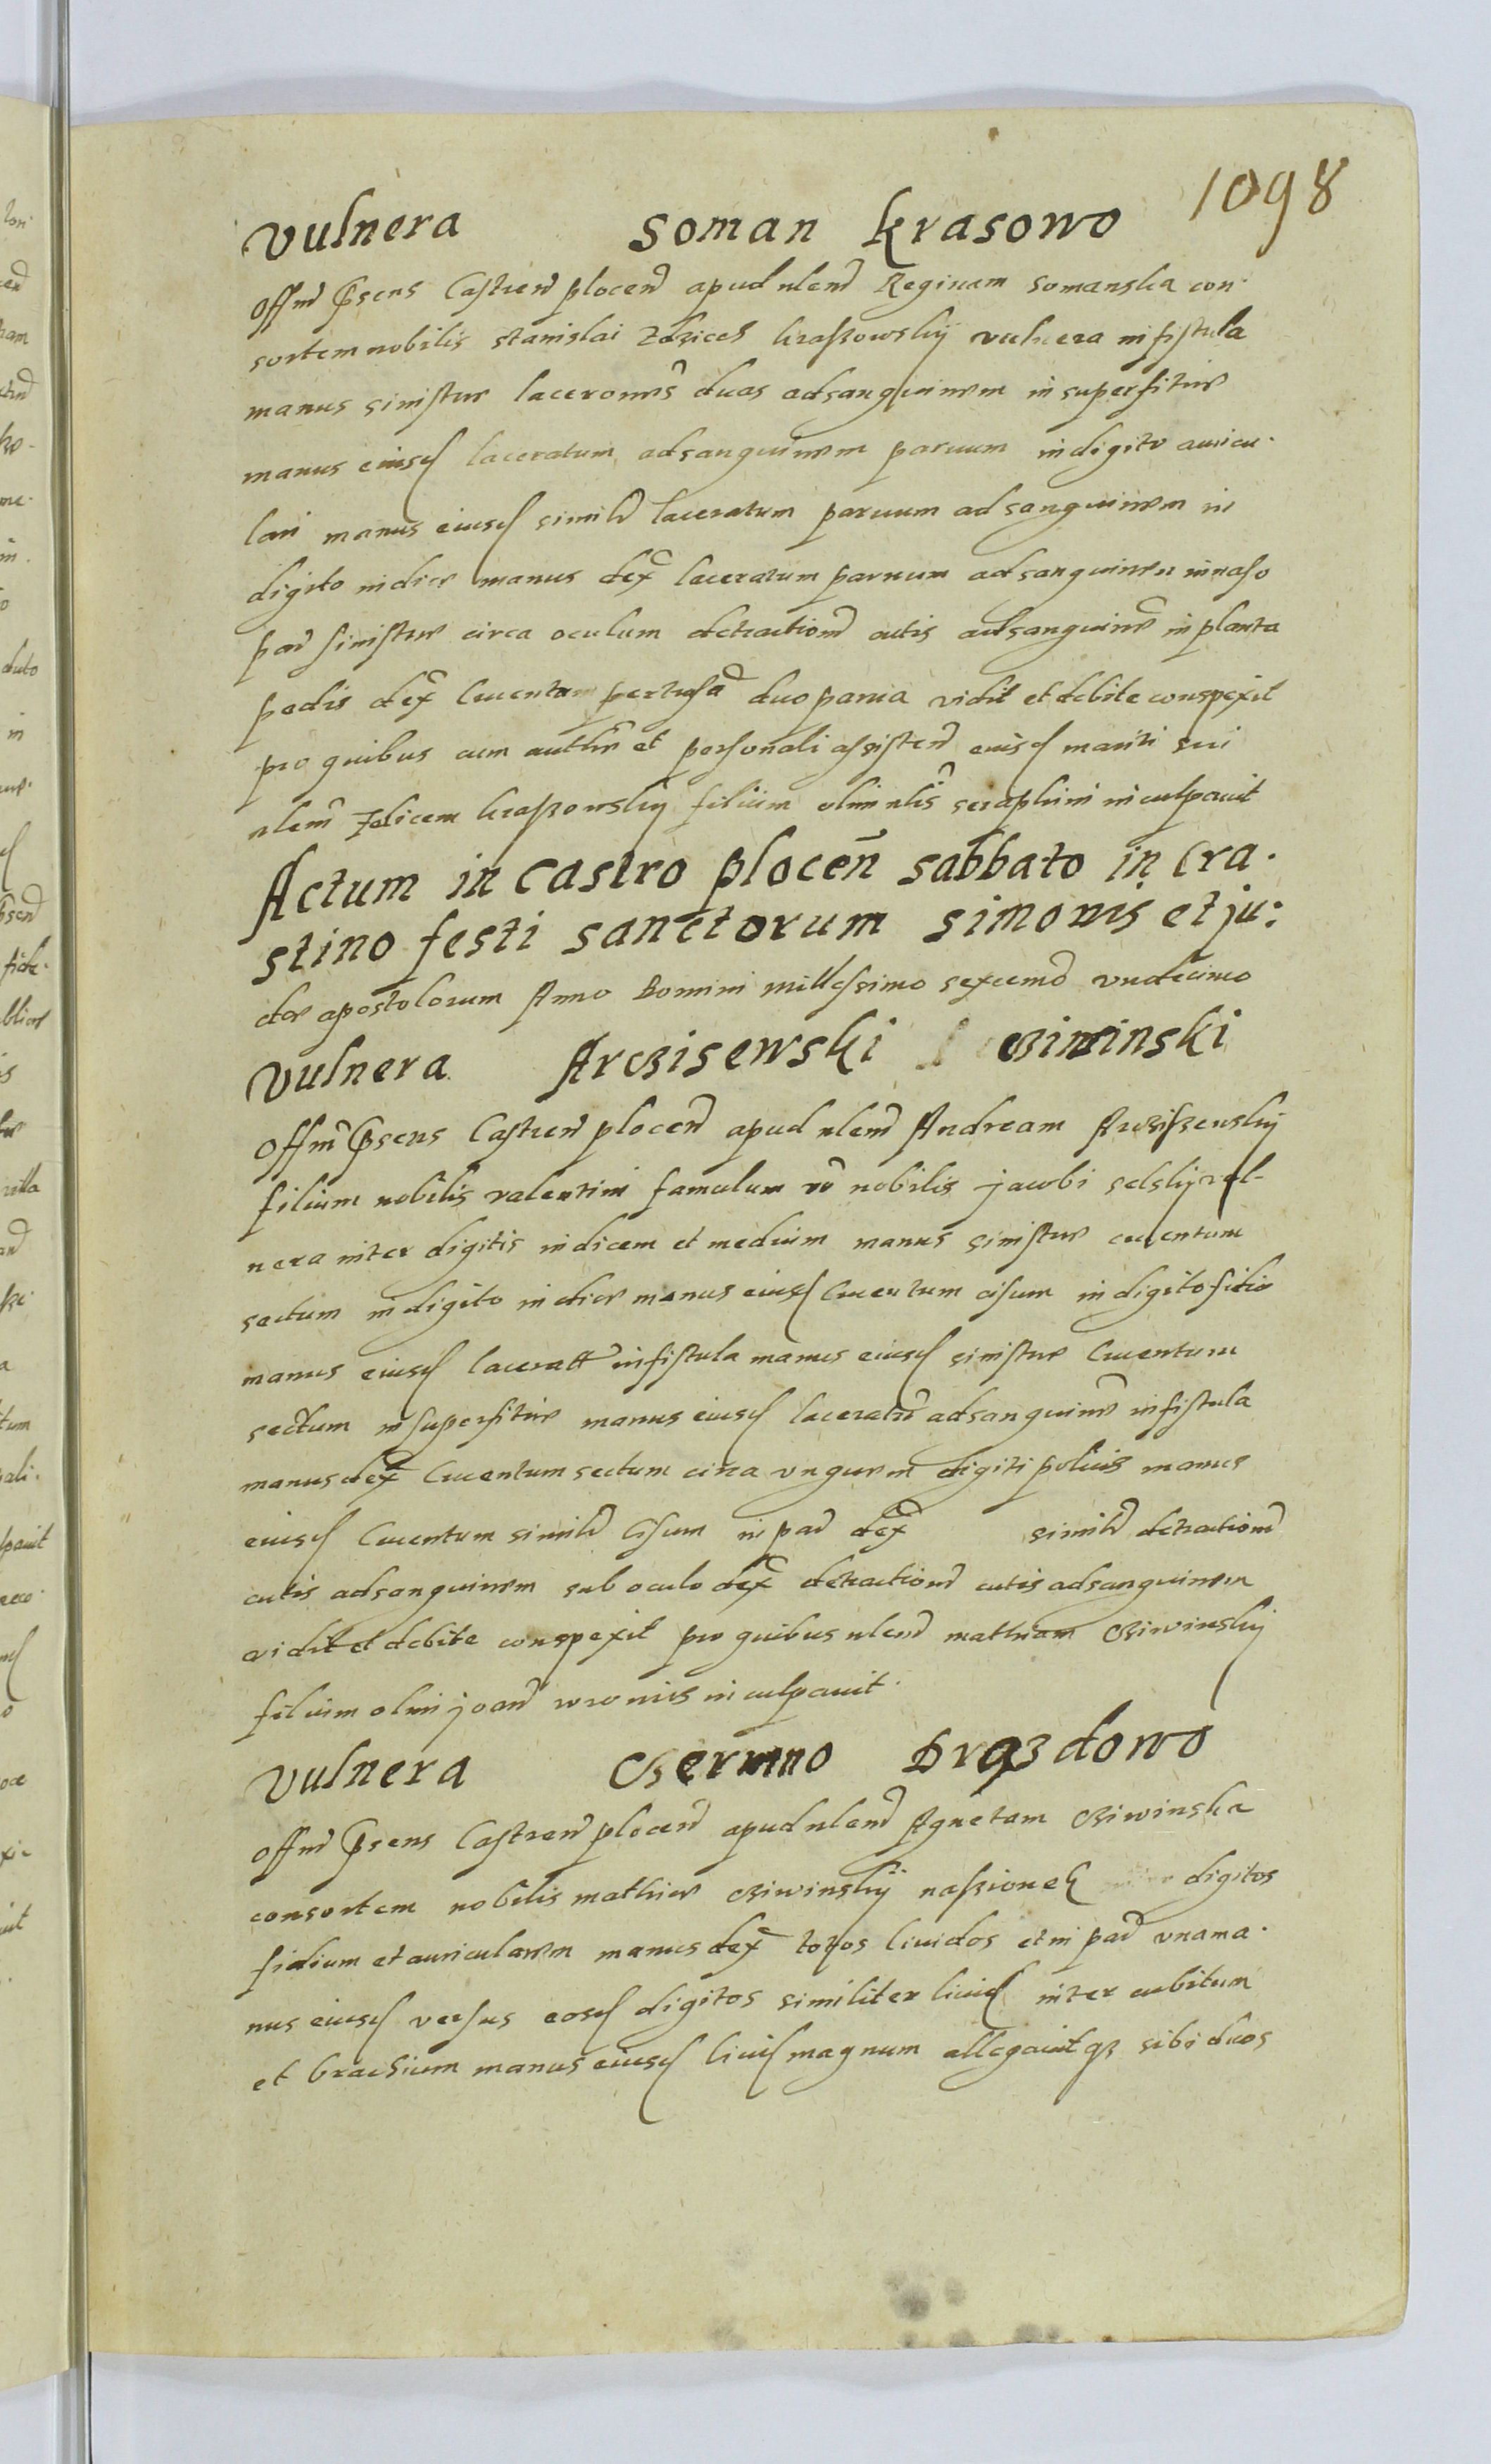 1098
Vulnera Soman Krasowo
Offm Pnsens Castren plocen apud nlem Reginam Somanska con.
sortem nobilis Stanislai Zdzicek kraßowskij vulnera in fistula
manus sinistræ laceromes duas ad sanguinem in superfitie
manus eiusd laceratum ad sanguinem paruum in digito auricu.
lari manus eiusd similr laceratum paruum ad sanguinem in
digito indice manus dex laceratum paruum ad sanguinem in naso
par sinistræ circa oculum detractionem cutis ad sanguinem in planta
pedis dex cruentam pertusam duo parua vidit et debite conspexit
pro quibus cum auttne et personali assisten eiusd mariti sui
nlem Felicem kraßowskij filium olim nlis seraphini inculpauit
Actum in Castro plocen Sabbato in Cra.
stino festi Sanctorum Simonis et ju:
dæ apostolorum Anno Domini millesimo sexcemo vndecimo
Vulnera Arczisewski Cziwinski
Offm Pnsens Castren plocen apud nlem Andream Arczißewskij
filium nobilis valentini famulum vo nobilis jacobi selskij vul-
nera inter digitis indicem et medium manus sinistræ cruentum
sectum in digito indice manus eiusd cruentum cisum in digito fidio
manus eiusd laceratt in fistula manus eiusd sinistræ cruentum
sectum in superfitie manus eiusd laceratum ad sanguinem in fistula
manus dex cruentum sectum circa vnguem digiti policis manus
eiusd cruentum similr cisum in par dex similr detractionem
cutis ad sanguinem sub oculo dex detractionem cutis ad sanguinem
vidit et debite conspexit pro quibus nlem mathiam Cziwinskij
filium olim joan wronis inculpauit.
Vulnera Czermno Drozdowo
Offm Pnsens Castren plocen apud nlem Agnetam Cziwinska
consortem nobilis mathiæ Cziwinskij naßionek digitos
fidium et auricularem manus dex totos liuidos et in par vna ma.
nus eiusd versus eosd digitos similiter liuid inter cubitum
et brachium manus eiusd liuid magnum allegauitqz sibi duos